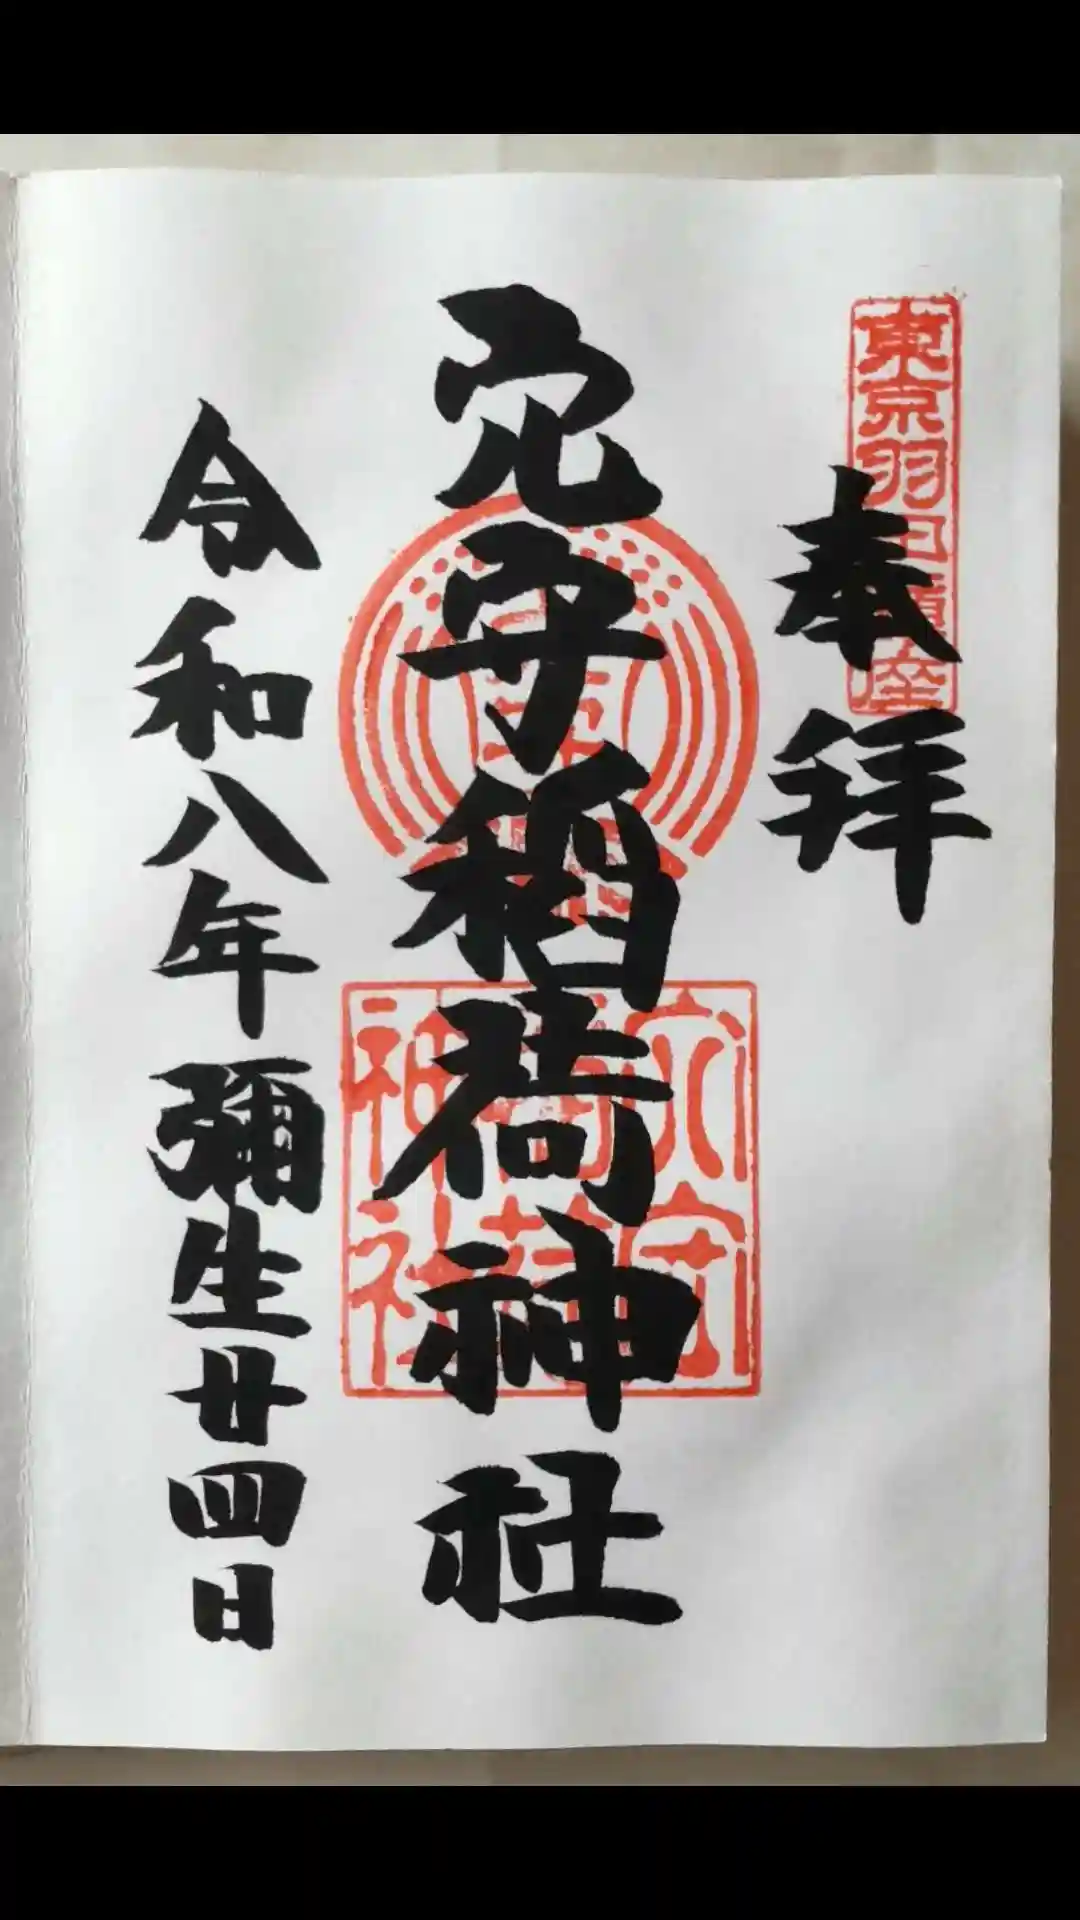 奉拝
穴守稲荷神社
令和八年彌生廿四日
東京羽田鎮座
穴守
稲荷
神社